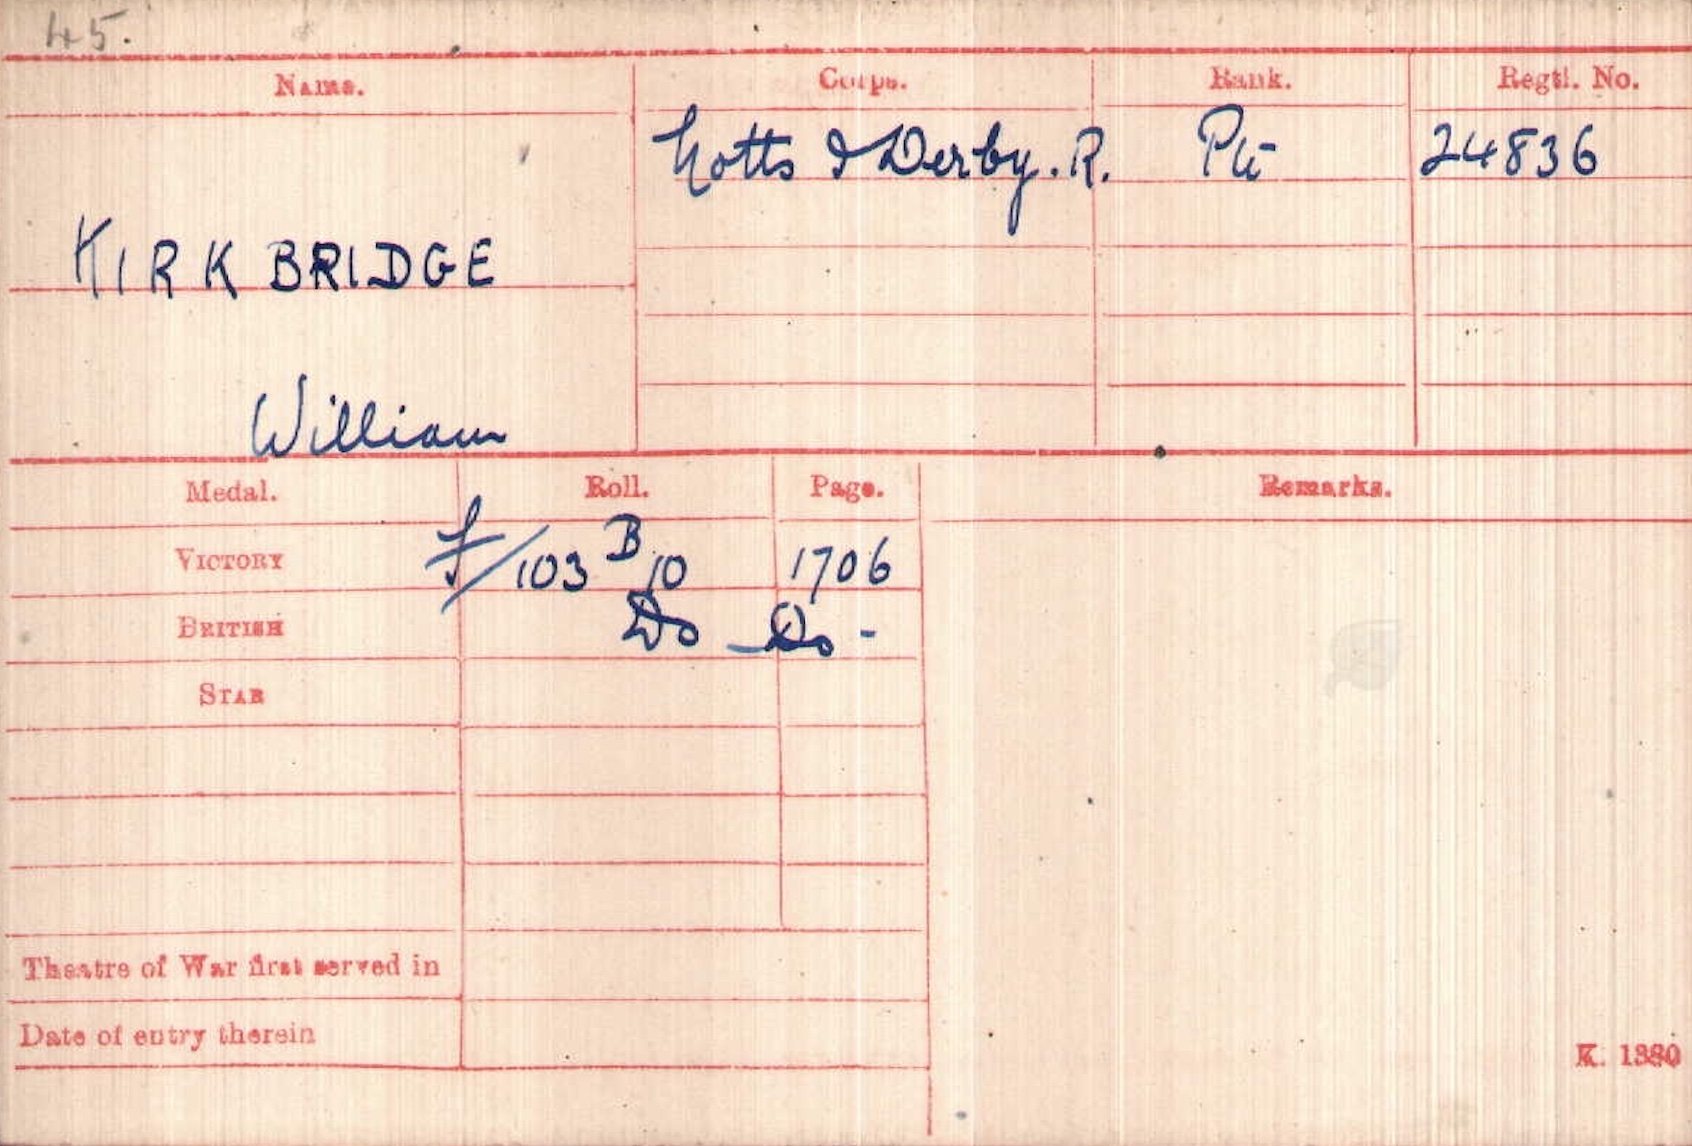 45.
Name. Corps. Rank. Regtl. No.
Notts & Derby. R. Pte 24836
KIRKBRIDGE
William
Medal. Roll. Page. Remarks.
VICTORY F/103 B 10 1706
BRITISH Do - Do -
STAR
Theatre of War first served in
Date of entry therein
K. 1380